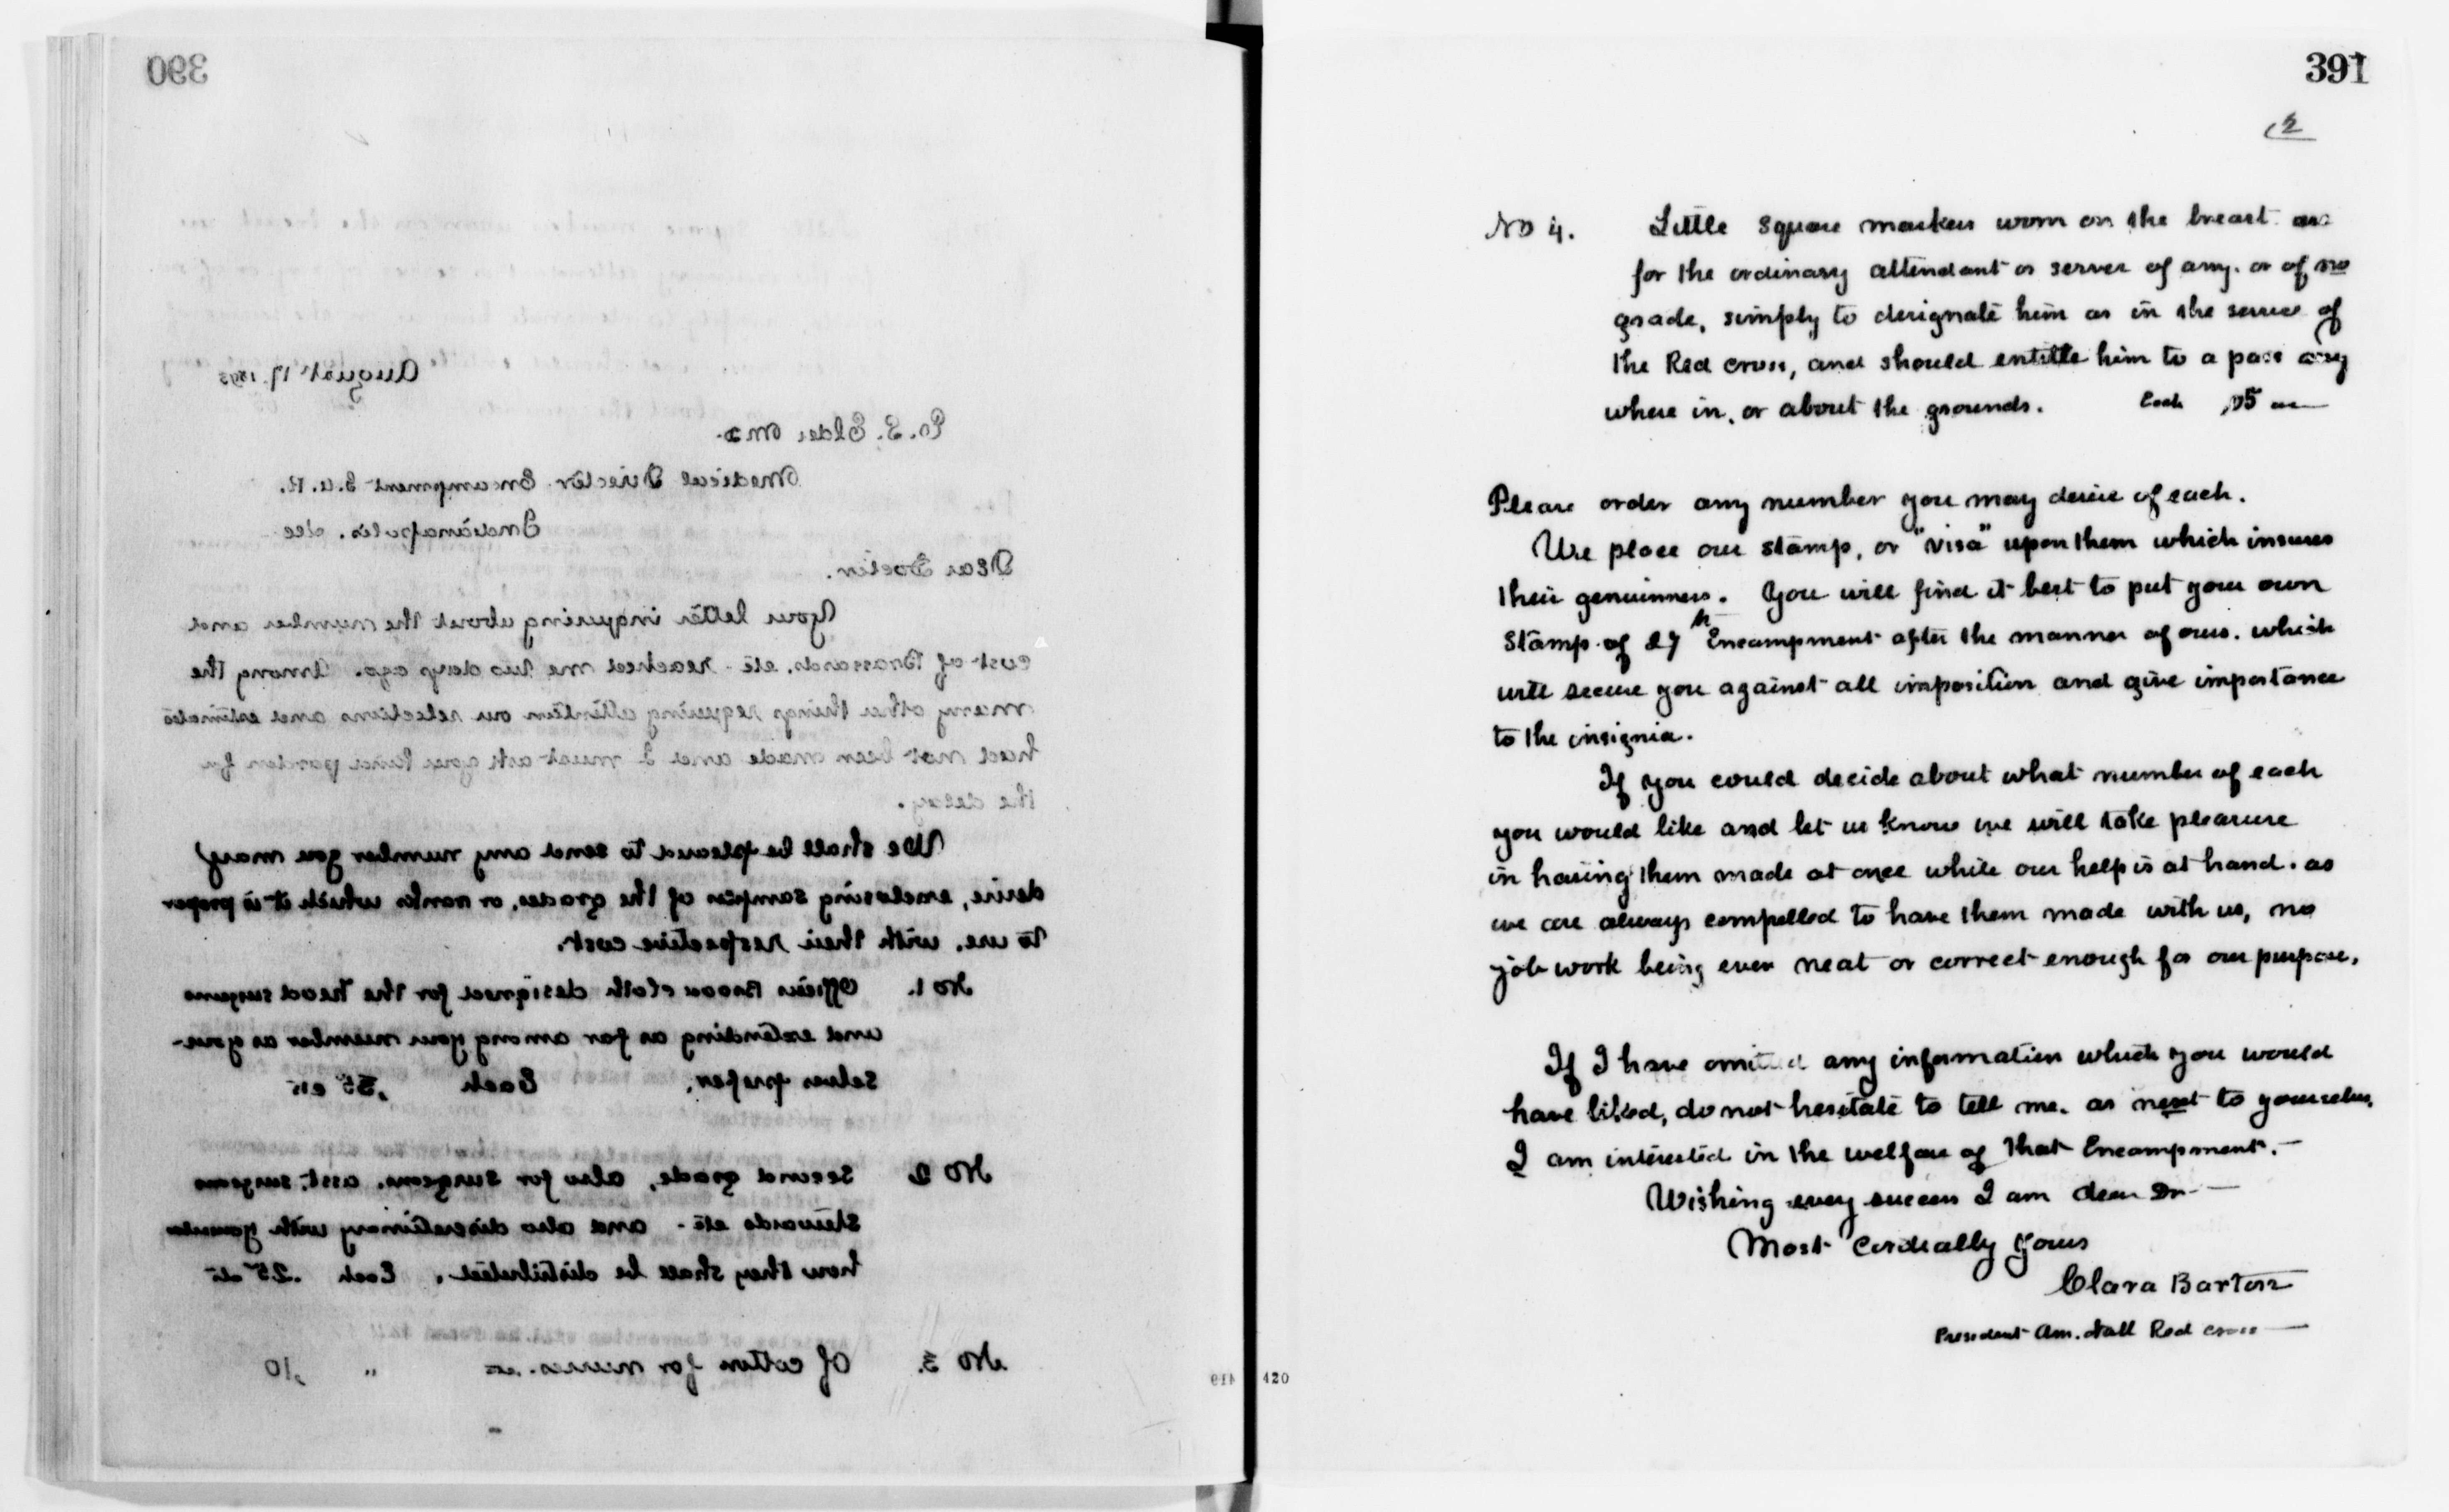 390
August 17, 1893
E. S. Elder MD.
Medical Director Encampment G.A.R.
Indianapolis. Dec
Dear Doctor.
Your letter inquiring about the number and
cost of Brassards. etc - reached me two days ago. Among the
many other things requiring attention our selections and estimates
had not been made and I must ask your kind pardon for
the delay.
We shall be pleased to send any number you may
desire, enclosing samples of the grades, or ranks which it is proper
to use, with their respective cost.
No 1. Officers Broad cloth designed for the head surgeons
and extending as far among your number as your-
selves prefer. Each .35 cts
No 2 Second grade, also for surgeons. asst. surgeons
stewards etc - and also discretionary with yourselves
how they shall be distributed. Each .25 cts
No 3. Of cotton for nurses. " .10
419
391
2
No 4. Little square markers worn on the breast are
for the ordinary attendant or server of any. or of no
grade, simply to designate him as in the service of
the Red cross, and should entitle him to a pass any
where in. or about the grounds. Each .05
Please order any number you may desire of each.
We place our stamp, or "visa" upon them which insures
their genuinness. You will find it best to put your own
stamp. of 27th Encampment after the manner of ours. which
will secure you against all imposition and give importance
to the insignia.
If you could decide about what number of each
you would like and let us know we will take pleasure
in having them made at once while our help is at hand. as
we are always compelled to have them made with us, no
job work being ever neat or correct enough for our purpose.
If I have omitted any information which you would
have liked, do not hesitate to tell me. as next to yourselves,
I am interested in the welfare of that Encampment. —
Wishing every success I am dear Dr —
Most Cordially yours
Clara Barton
President Am. Natl Red Cross —
420